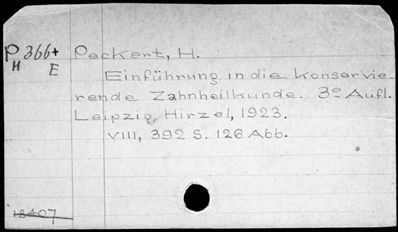 P 366+ Peckert, H.
H E Einführung in die konservie-
rende Zahnheilkunde. 3e Aufl.
Leipzig, Hirzel, 1923.
VIII, 392 S. 126 Abb.
18407